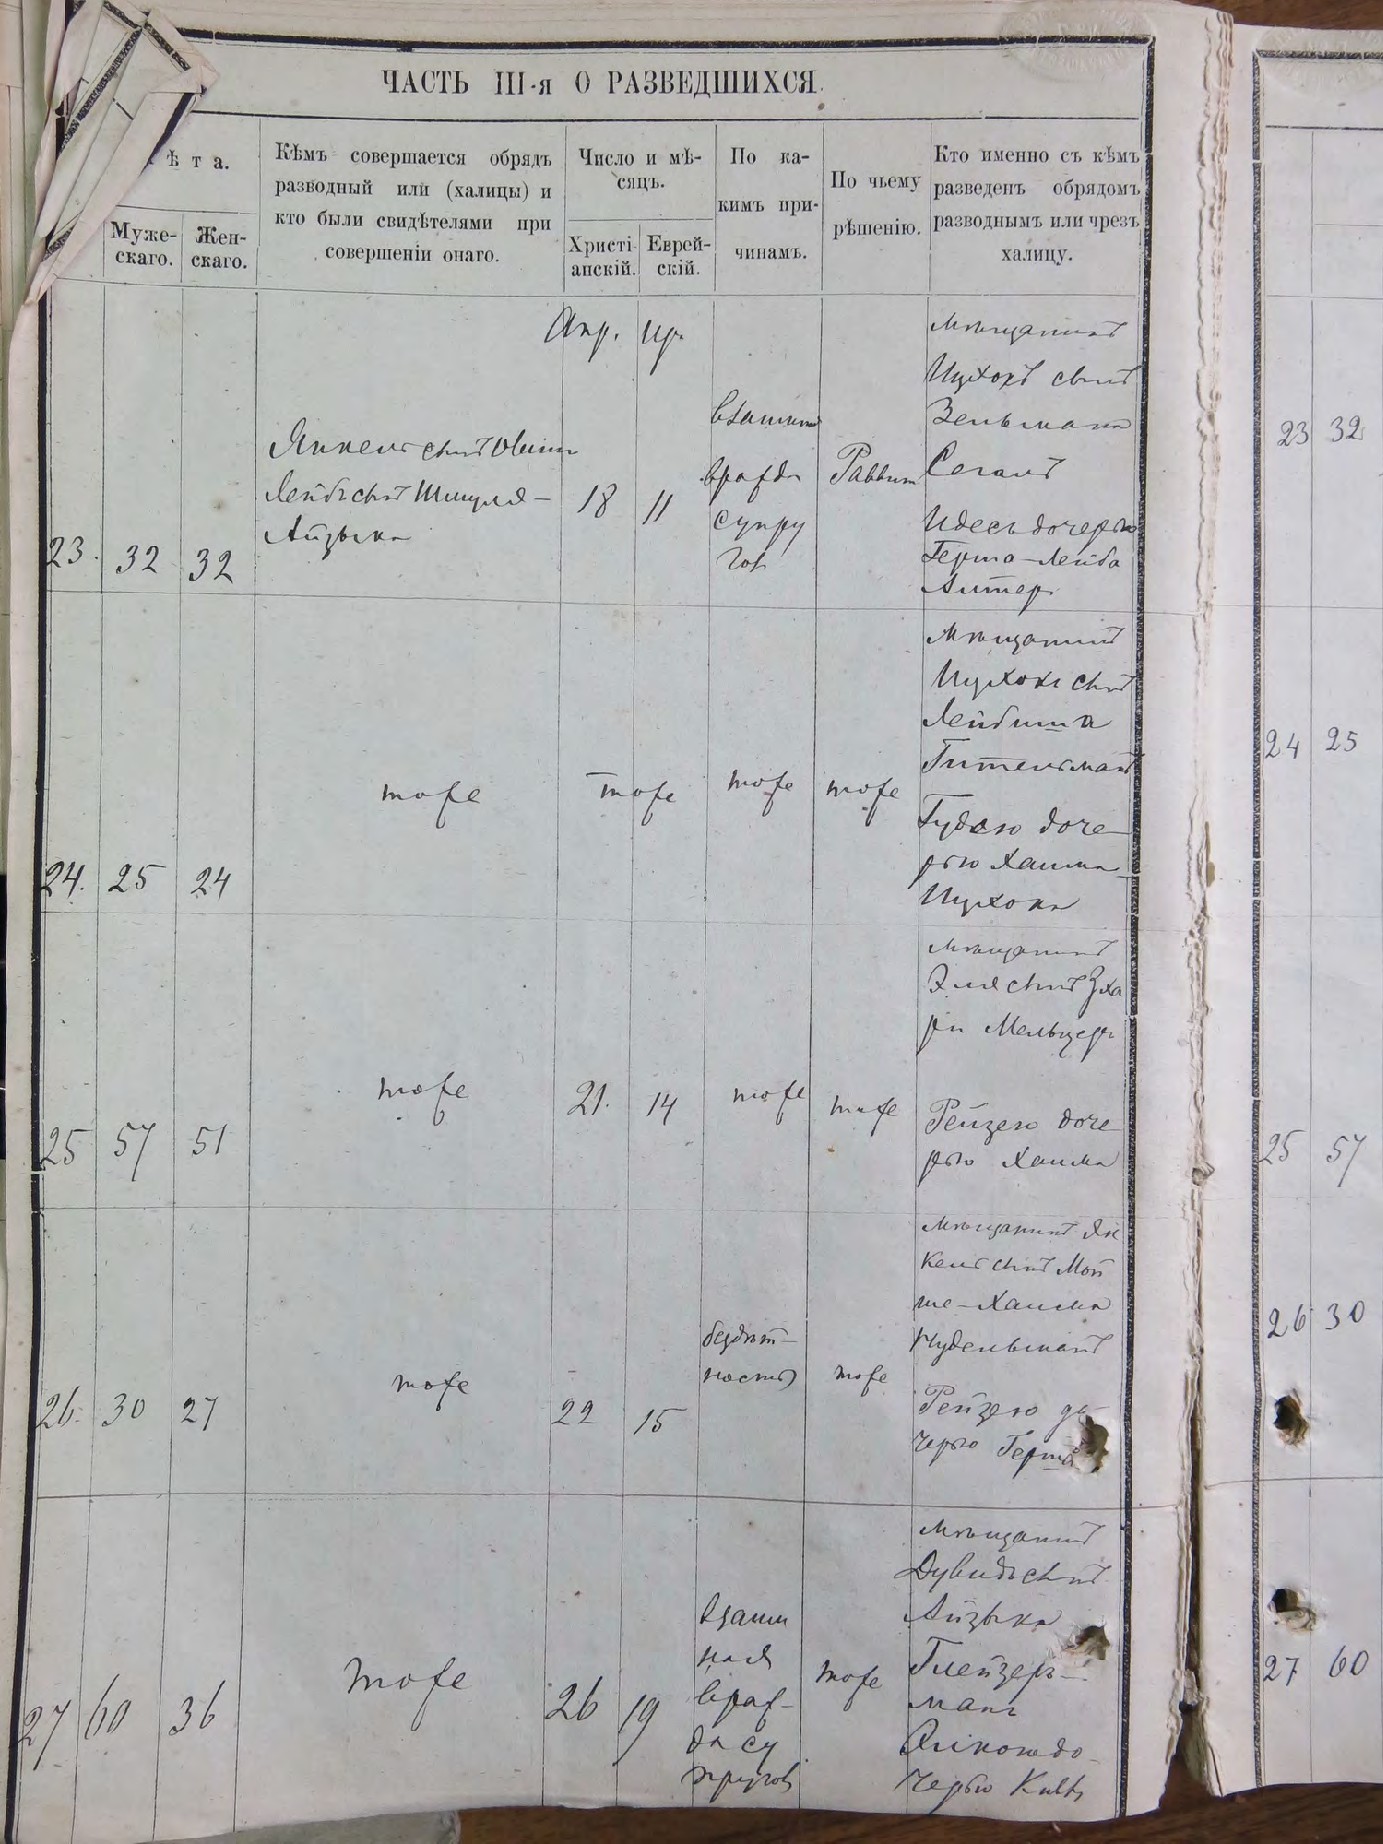 ЧАСТЬ III-я О РАЗВЕДШИХСЯ.
ѣта.
Муже-
скаго.
Жен-
скаго.
Кѣмъ совершается обрядъ
разводный или (халицы) и
кто были свидѣтелями при
совершеніи онаго.
Число и мѣ-
сяцъ.
Христі-
анскій.
Еврей-
скій.
По ка-
кимъ при-
чинамъ.
По чьему
рѣшенію.
Кто именно съ кѣмъ
разведенъ обрядомъ
разводнымъ или чрезъ
халицу.
23. 32 32
Янкель сынъ
Лейбъ сынъ Шмуля-
Айзыка
Апр. 18
Ир. 11
взаимная
вражда
супру
говъ
Раввинъ
мѣщанинъ
Ицхокъ сынъ
Зельмана
Сегалъ
Идесъ дочерью
Герша-Лейба
Алтеръ
24. 25 24
тоже
тоже
тоже
тоже
мѣщанинъ
Ицхокъ сынъ
Лейбиша
Гительманъ
доче-
рью Хаима
Ицхока
25 57 51
тоже
21. 14
тоже
тоже
мѣщанинъ
Эля сынъ Зха
ри Мельцеръ
Рейзею доче-
рью Хаима
26. 30 27
тоже
22 15
бездѣт-
ность
тоже
мѣщанинъ Ян
кель сынъ Мой
ше-Хаима
Нудельманъ
Рейзею до-
черью Герша
27 60 36
тоже
26 19
взаим
ная
враж-
да су
пруговъ
тоже
мѣщанинъ
Дувидъ сынъ
Айзыка
Глейзеръ-
манъ
до-
черью Кивы
23 32
24 25
25 57
26 30
27 60